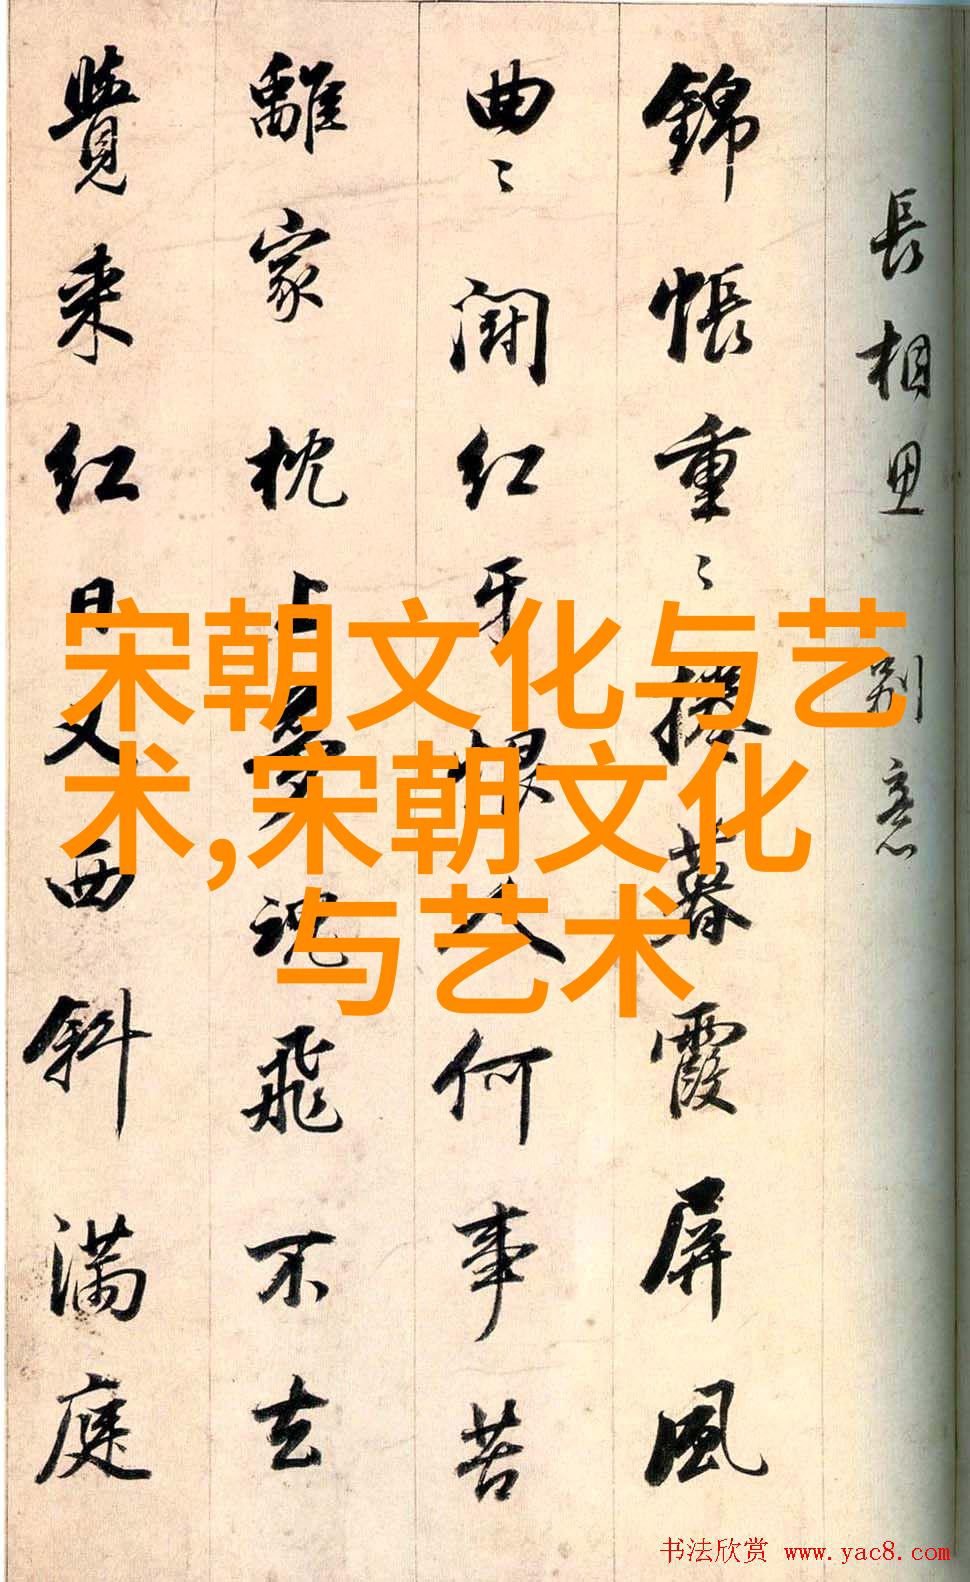 長相思 別意
錦帳重〻捲暮霞屏風
曲〻鬪紅牙恨人何事苦
離家枕上夢魂飛不去
覺来紅日又西斜滿庭
宋朝文化与艺
术,宋朝文化
与艺术
书法欣赏 www.yac8.com